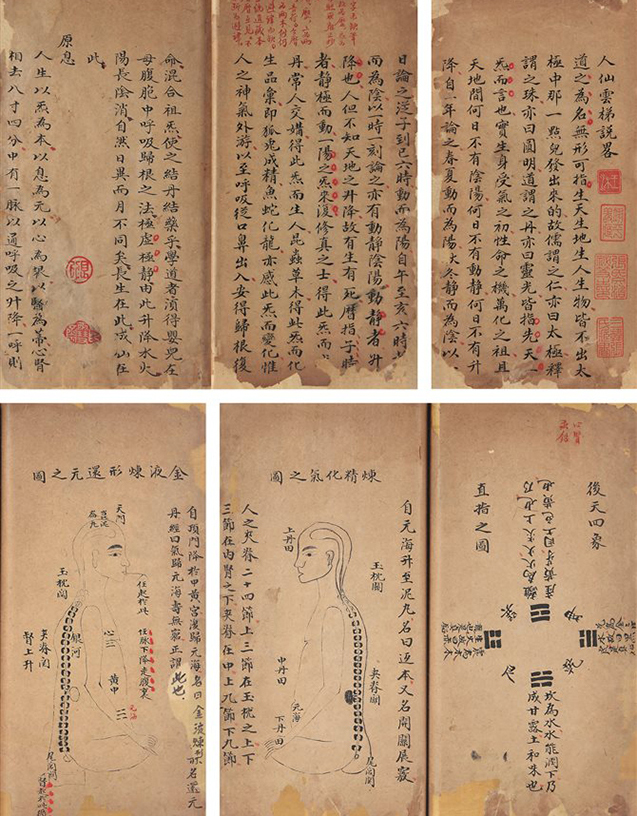 人仙雲梯説畧
道之為名無形可指生天生地生人生物皆不出太
極中那一點兒發出來的故儒謂之仁亦曰太極釋
謂之珠亦曰圓明道謂之丹亦曰靈光皆指先天一
炁而言也實生身受氣之初性命之機萬化之祖且
天地間何日不有陰陽何日不有動靜何日不有升
降自一年論之春夏動而為陽冬靜而為陰以
日論之逆子到巳六時動而為陽自午至亥六時
而為陰以一時一刻論之亦有動靜陰陽動靜者升
降也人但不知天地之升降故有生有死曆指子時
者靜極而動一陽之炁來復修真之士得此炁而
丹常人交媾得此炁而生人昆蟲草木得此炁而化
生品彙即狐兎成精魚蛇化龍亦感此炁而變化惟
人之神氣外游以至呼吸從口鼻出入安得歸根復
命混合祖炁使之結丹結藥乎學道者湏得嬰兒在
母腹胞中呼吸歸根之法極虛極靜由此升降水火
陽長陰消自然日異而月不同矣長生在此成仙在
此
原息
人生以炁為本以息為元以心為根以腎為蒂心腎
相去八寸四分中有一脉以通呼吸之升降一呼則
後天四象
直指之圖
坎為水水能潤下乃
成甘露土和朱也
煉精化氣之圖
自元海升至泥丸名曰返本又名開關展竅
玉枕關
夾脊關
尾閭關
上丹田
中丹田
元海
下丹田
人之夾脊二十四節上三節在玉枕之上下
三節在內腎之下夾脊在中上九節下九節
金液煉形還元之圖
自頂門降於中黃宮復歸元海名曰金液煉形名還元
丹經曰氣歸元海壽無窮正謂此也
天門
玉枕關
銀河
夾脊關
腎上升
心
黃中
元海
尾閭關
任脉下降交腹裏